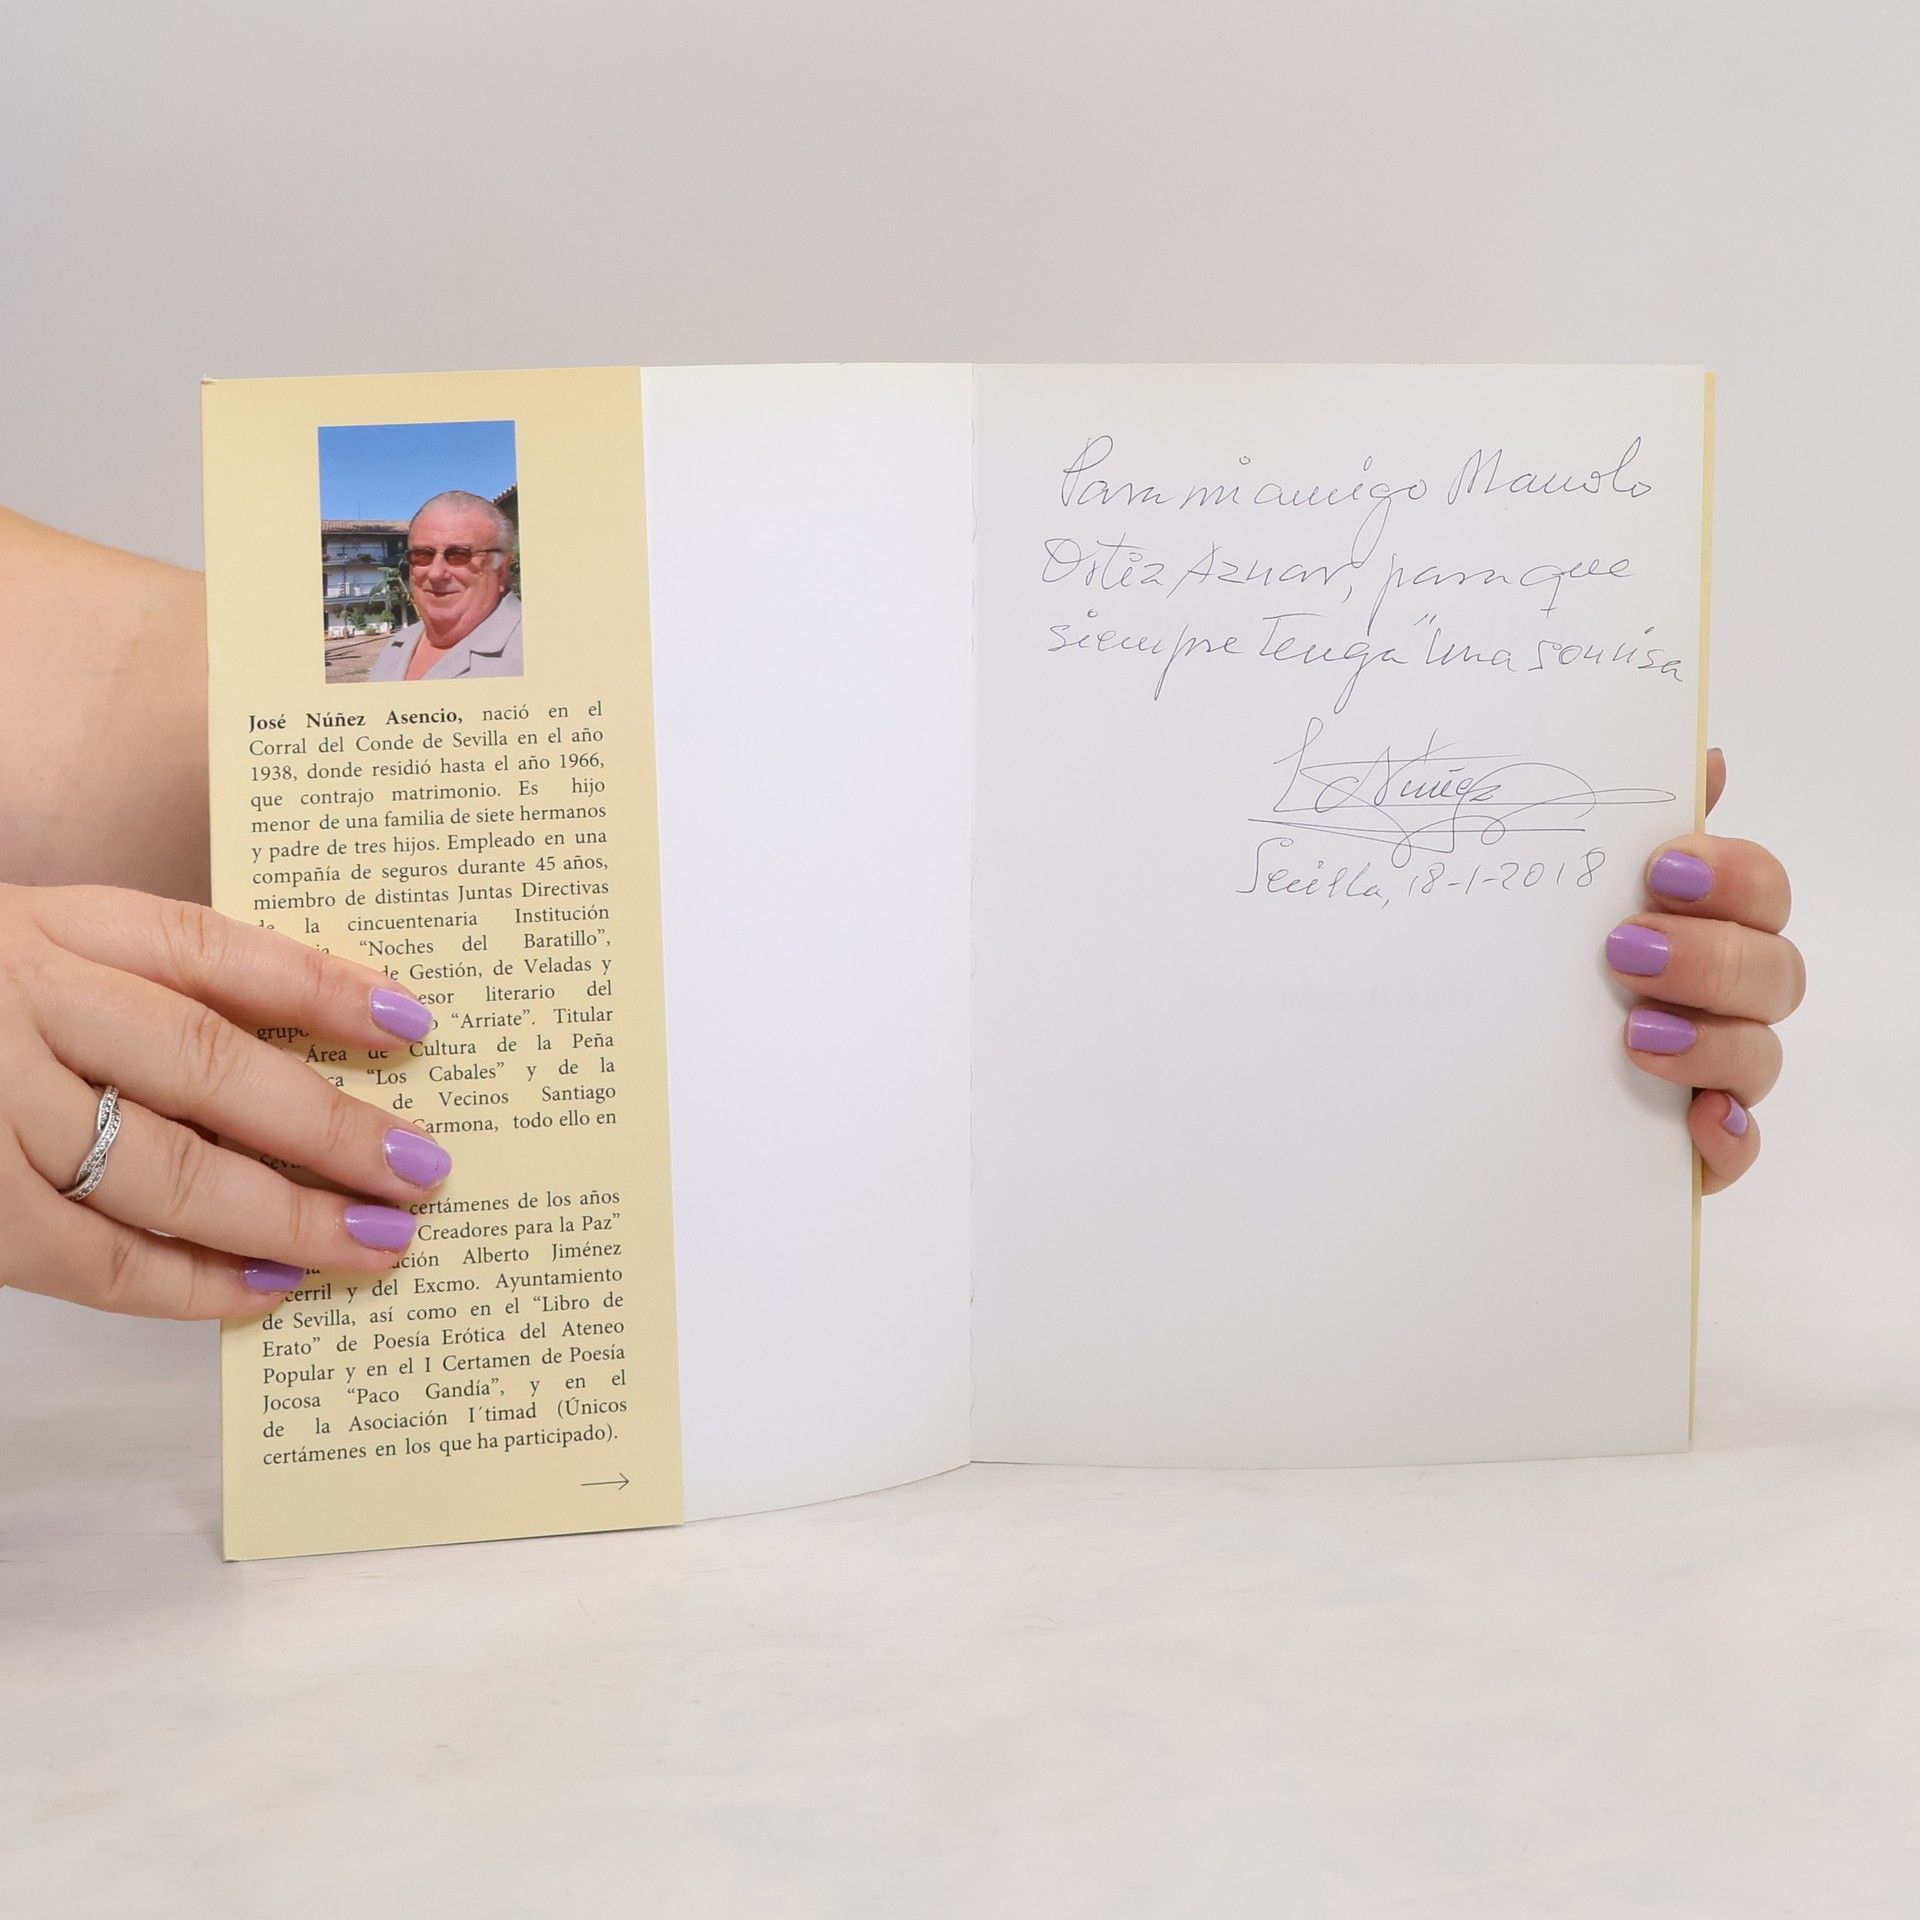 José Núñez Asencio, nació en el
Corral del Conde de Sevilla en el año
1938, donde residió hasta el año 1966,
que contrajo matrimonio. Es hijo
menor de una familia de siete hermanos
y padre de tres hijos. Empleado en una
compañía de seguros durante 45 años,
miembro de distintas Juntas Directivas
de la cincuentenaria Institución
“Noches del Baratillo”,
de Gestión, de Veladas y
literario del
grupo “Arriate”. Titular
Área de Cultura de la Peña
“Los Cabales” y de la
de Vecinos Santiago
Carmona, todo ello en
certámenes de los años
Creadores para la Paz”
Alberto Jiménez
y del Excmo. Ayuntamiento
de Sevilla, así como en el “Libro de
Erato” de Poesía Erótica del Ateneo
Popular y en el I Certamen de Poesía
Jocosa “Paco Gandía”, y en el
de la Asociación I´timad (Únicos
certámenes en los que ha participado).
Para mi amigo Manolo
Ortiz Aznar, para que
siempre tenga "una sonrisa
Núñez
Sevilla, 18-1-2018